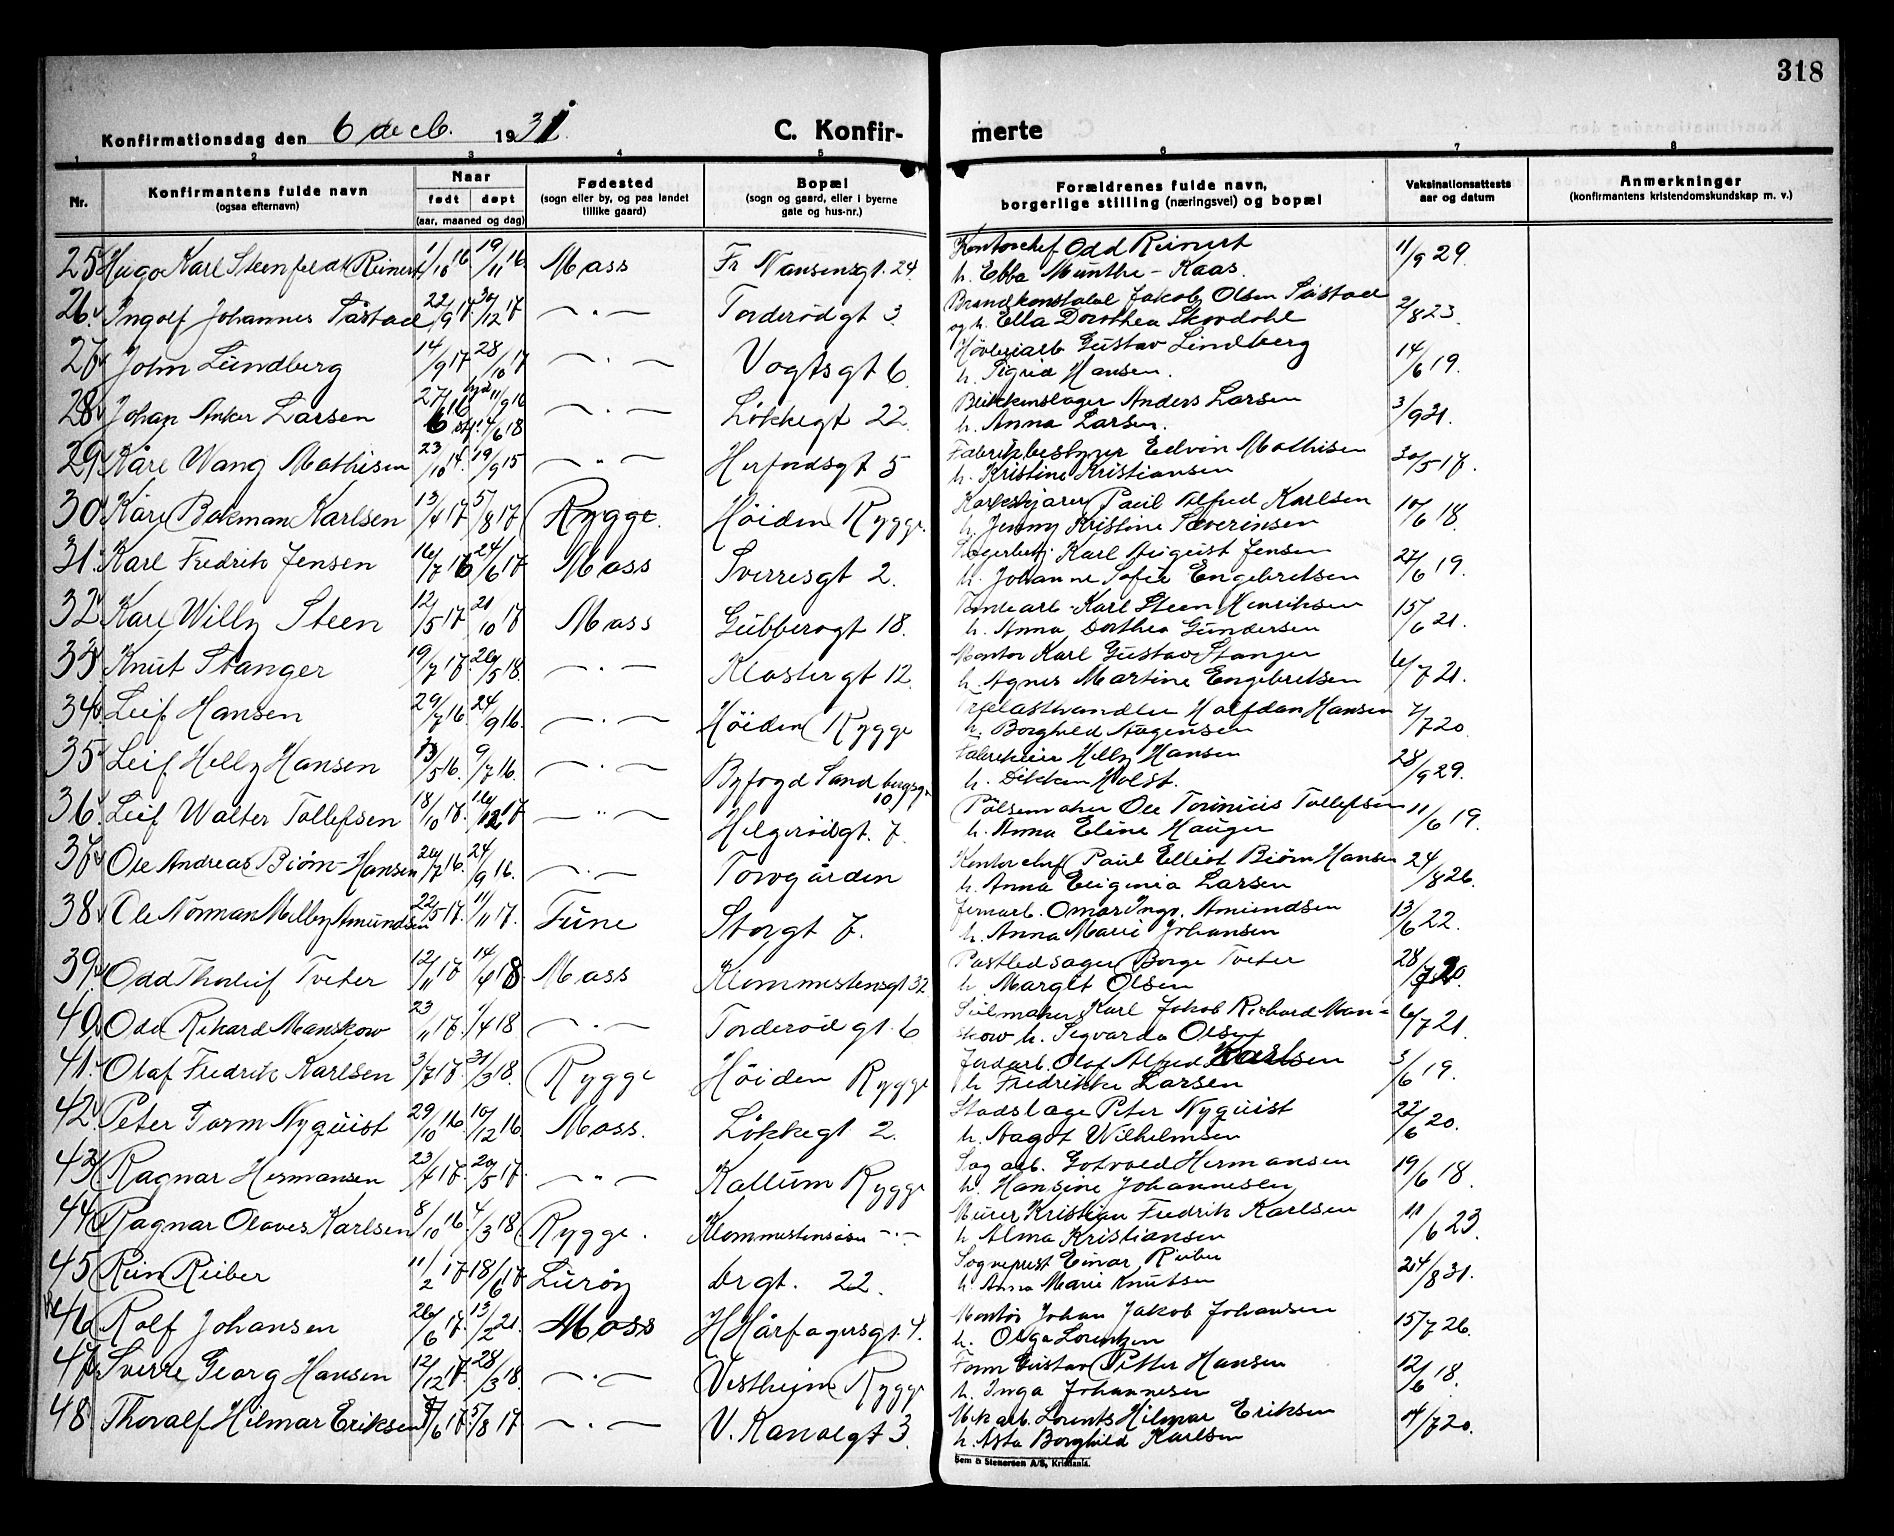 318
Konfirmationsdag den 6 decb. 1931. C. Konfir- merte
1 2 3 4 5 6 7 8
Nr. Konfirmantens fulde navn (ogsaa efternavn) Naar født døpt (aar, maaned og dag) Fødested (sogn eller by, og paa landet tillike gaard) Bopæl (sogn og gaard, eller i byerne gate og hus-nr.) Forældrenes fulde navn, borgerlige stilling (næringsvei) og bopæl Vaksinationsattests aar og datum Anmerkninger (konfirmantens kristendomskundskap m. v.)
25 Hugo Karl Steenfeldt Reinert 1/10 16 19/11 16 Moss Fr Nansensgt. 24 Kontorchef Odd Reinert 11/9 29.
h. Ebba Munthe-Kaas.
26 Ingolf Johannes Såstad 22/9 17 30/12 17 —.— Torderødgt 3. Brandkonstabel Jakob Olsen Såstad 2/8 23.
og h. Ella Dorothea Skovdahl
27 John Lundberg 14/9 17 28/10 17 —.— Vogtsgt 6. Høvleriarb Gustav Lindberg 14/6 19.
h. Sigrid Hansen.
28 Johan Anker Larsen 27/6 16 11/9 16 4/6 18 —.— Løkkegt 22. Blikkenslager Anders Larsen 3/9 21.
h. Anna Larsen.
29 Kåre Wang Mathisen 23/10 14. 19/9 15 — " — Herfordsgt 5 Fabrikbestyrer Edvin Mathisen 30/5 17.
h. Kristine Kristiansen
30 Kåre Bakman Karlsen 13/4 17 5/8 17 Rygge. Høiden Rygge. Paul Alfred Karlsen 10/6 18.
h. Jenny Kristine Severinsen
31 Karl Fredrik Jensen 16/7 16 24/6 17 Moss Sverresgt 2. Lagerbetj. Karl August Jensen 27/6 19.
h. Johanne Sofie Engebretsen
32 Karl Willy Steen 12/5 17 21/10 17 Moss Gubberogt 18. Karl Steen Henriksen 15/6 21.
h. Anna Dorthea Gundersen
33 Knut Stanger 19/7 17. 20/5 18. —.— Klostergt 12. Montør Karl Gustav Stanger 6/7 21.
h. Agnes Martine Engebretsen
34 Leif Hansen 29/7 16. 24/9 16. —.— Høiden Rygge Halfdan Hansen 7/7 20.
h. Borghild Aagensen
35 Leif Helly Hansen 13/5 16. 9/7 16. —.— Byfogd Sandbergsgt 10 Fabrikeier Helly Hansen 28/9 29.
h. Dikken Holst.
36 Leif Walter Tollefsen 18/10 17. 16/12 17 — " — Helgerødgt. 7. Pølsemaker Ole Tollefsen 11/6 19.
h. Anna Eline Hauger
37 Ole Andreas Biørn-Hansen 26/7 16. 24/9 16. —.— Torvgården Kontorchef Paul Elliot Biørn Hansen 24/8 26.
h. Anna Eugenia Larsen
38 Ole Norman Melby Amundsen 22/5 17. 11/11 17. Tune Storgt 7. Jernarb. Omar Ingv. Amundsen 13/6 22.
h. Anna Marie Johansen
39 Odd Thorleif Tveter 12/11 17 14/4 18 Moss Klommestensgt 32 Postledsager Borge Tveter 28/7 20.
h. Margit Olsen
40 Odd Rikard Manskow 23/11 17. 1/4 18 —.— Torderødgt. 6 Seilmaker Karl Jakob Richard Man- 6/7 21.
skow h. Sigvarda Olsen
41 Olaf Fredrik Karlsen 3/7 17. 31/3 18. Rygge Høiden Rygge Jordarb. Olaf Alfred Karlsen 3/6 19.
h Fredrikke Larsen
42 Peter Form Nyquist 29/10 16. 10/12 16 Moss. Løkkegt 2. Peter Nyquist 22/6 20.
h. Aagot Wilhelmsen
43 Ragnar Hermansen 23/4 17. 20/5 17. — " — Kallum Rygge Sagarb. Gotvald Hermansen 19/6 18.
h. Hansine Johannesen
44 Ragnar Olaves Karlsen 8/10 16. 4/3 18 Rygge. Klommestensåsen —.— Murer Kristian Fredrik Karlsen 11/6 23.
h Alma Kristiansen
45 Rein Rieber 11/2 17 18/6 17 Lurøy Drgt. 22. Sogneprest Einar Rieber 24/8 31.
h. Anna Marie Knutsen
46 Rolf Johansen 26/6 17. 13/2 21. Moss H Hårfagersgt. 4. Montør Johan Jakob Johansen 15/7 26.
h. Olga Lorentzen
47 Sverre Georg Hansen 12/12 17. 28/3 18. —.— Vestheim Rygge Form Gustav Petter Hansen 12/6 18.
h. Inga Johannesen
48 Thoralf Hilmar Eriksen 5/6 17. 5/8 17 —.— V. Kanalgt 3. Mek arb. Lorents Hilmar Eriksen 14/7 20.
h. Asta Borghild Karlsen
Sem & Stenersen A/S, Kristiania.